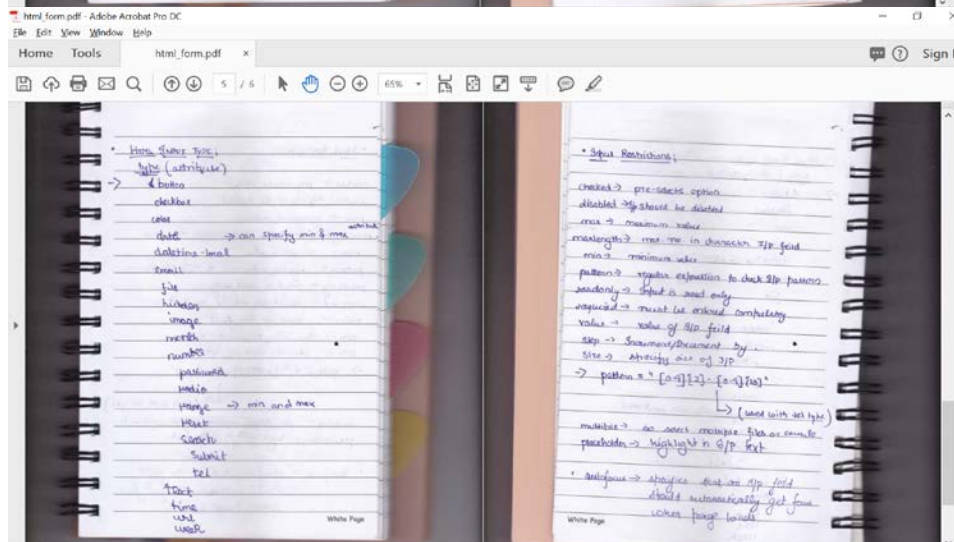 html_form.pdf - Adobe Acrobat Pro DC
File Edit View Window Help
Home Tools html_form.pdf × ? Sign I
5 / 6 65%
• Html Input Type;
type (attribute)
-> button
checkbox
color
date -> can specify min & max attribute
datetime-local
email
file
hidden
image
month
number
password
radio
range -> min and max
reset
search
submit
tel
text
time
url
week
White Page
• Input Restrictions;
checked -> pre-selects option
disabled -> I/p should be disabled
max -> maximum value
maxlength -> max no. in character I/p feild
min -> minimum value
pattern -> regular expression to check I/p pattern
readonly -> Input is read only
required -> must be entered
value -> value of I/p feild
step -> Increment/Decrement by.
size -> specify size of I/P
-> pattern = "
(used with tel type)
multiple -> to select multiple files or emails
placeholder -> highlight in I/P text
• autofocus -> specifies that an I/p feild
should automatically get
when page loads
White Page